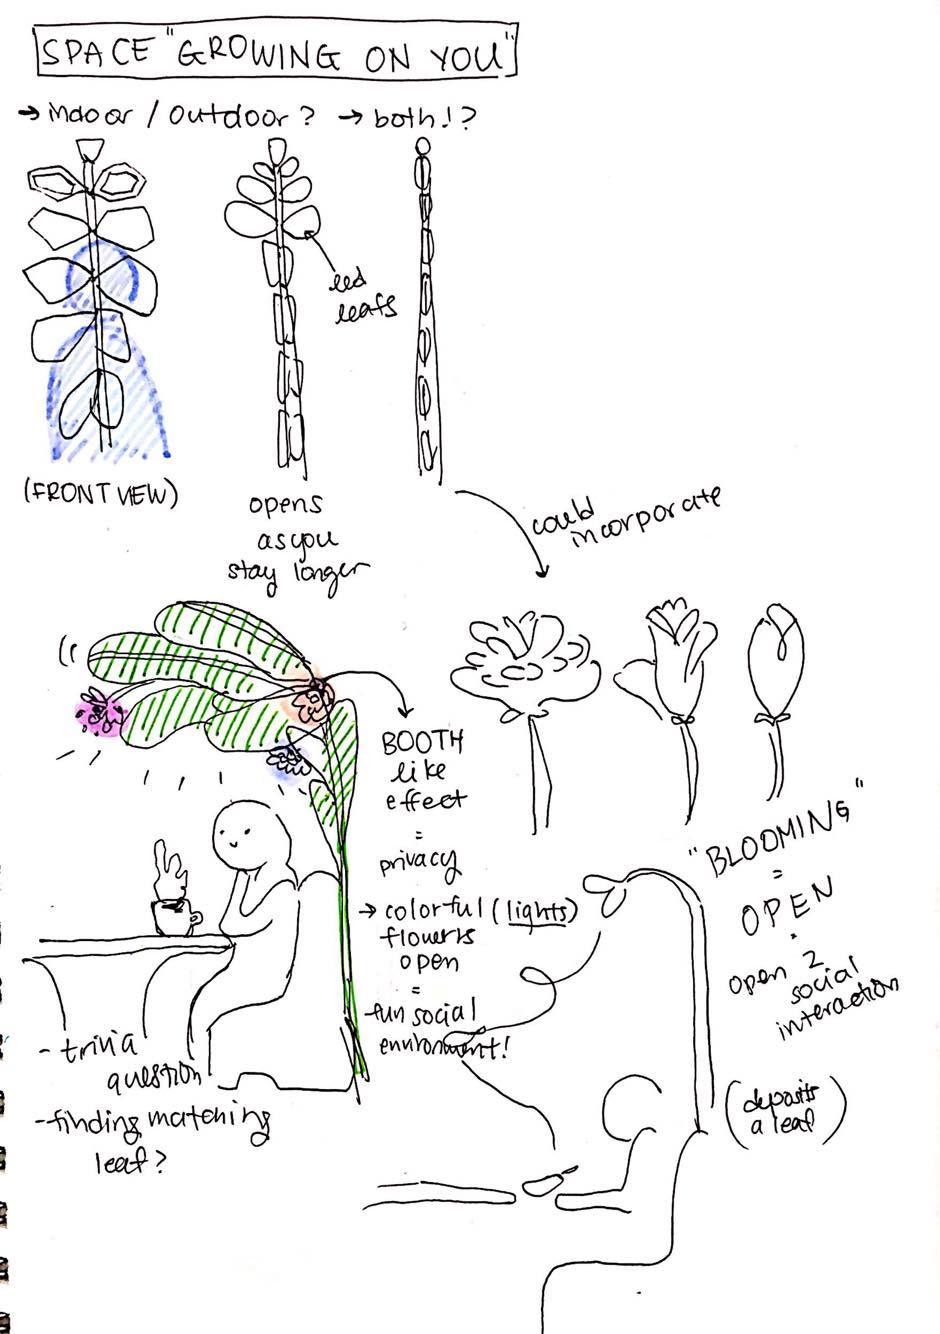 SPACE "GROWING ON YOU"
→ indoor / outdoor? → both!?
led
leafs
(FRONT VIEW)
opens
as you
stay longer
could
incorporate
BOOTH
like
effect
=
privacy
→ colorful (lights)
flowers
open
=
fun social
environment!
"BLOOMING"
=
OPEN
.
open 2
social
interaction
- trivia
question
- finding matching
leaf?
(deposits
a leaf)